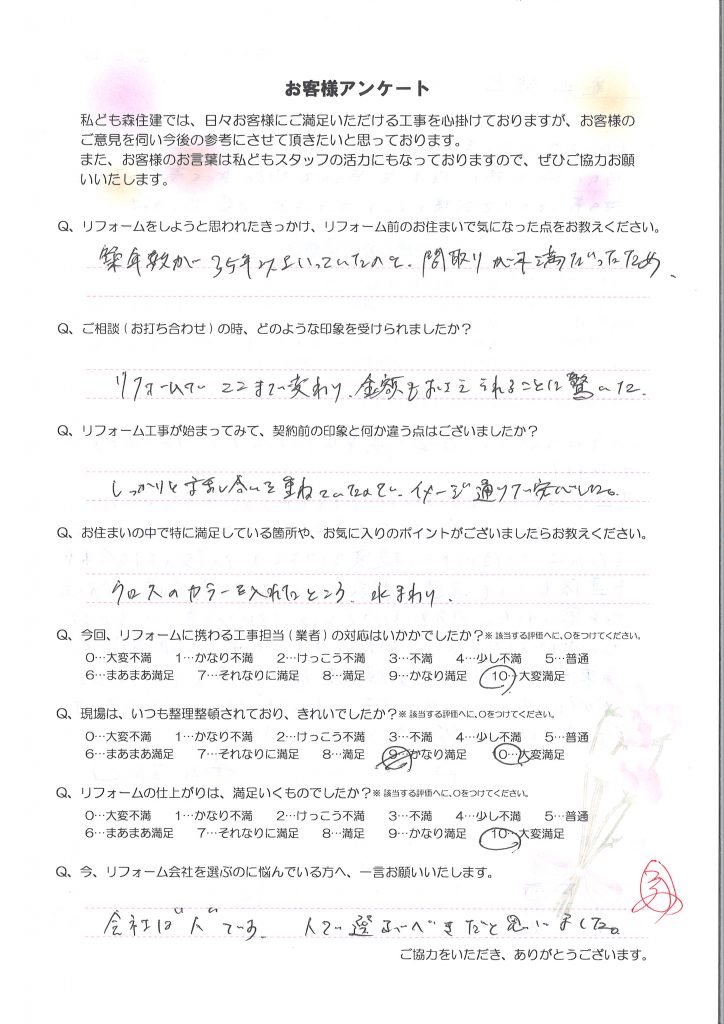 お客様アンケート
私ども森住建では、日々お客様にご満足いただける工事を心掛けておりますが、お客様の
ご意見を伺い今後の参考にさせて頂きたいと思っております。
また、お客様のお言葉は私どもスタッフの活力にもなっておりますので、ぜひご協力お願
いいたします。
Q、リフォームをしようと思われたきっかけ、リフォーム前のお住まいで気になった点をお教えください。
築年数が35年以上いっていたのと、間取りが不満だったため、
Q、ご相談（お打ち合わせ）の時、どのような印象を受けられましたか？
リフォームでここまで変わり、金額もおさえられることに驚いた。
Q、リフォーム工事が始まってみて、契約前の印象と何か違う点はございましたか？
しっかりと話し合いを重ねていたので、イメージ通りで安心した。
Q、お住まいの中で特に満足している箇所や、お気に入りのポイントがございましたらお教えください。
クロスのカラーを入れたところ、水まわり、
Q、今回、リフォームに携わる工事担当（業者）の対応はいかがでしたか？※該当する評価へに、○をつけてください。
0…大変不満 1…かなり不満 2…けっこう不満 3…不満 4…少し不満 5…普通
6…まあまあ満足 7…それなりに満足 8…満足 9…かなり満足 10…大変満足
Q、現場は、いつも整理整頓されており、きれいでしたか？※該当する評価へに、○をつけてください。
0…大変不満 1…かなり不満 2…けっこう不満 3…不満 4…少し不満 5…普通
6…まあまあ満足 7…それなりに満足 8…満足 9…かなり満足 10…大変満足
Q、リフォームの仕上がりは、満足いくものでしたか？※該当する評価へに、○をつけてください。
0…大変不満 1…かなり不満 2…けっこう不満 3…不満 4…少し不満 5…普通
6…まあまあ満足 7…それなりに満足 8…満足 9…かなり満足 10…大変満足
Q、今、リフォーム会社を選ぶのに悩んでいる方へ、一言お願いいたします。
会社は"人"です。 人で選ぶべきだと思いました。
ご協力をいただき、ありがとうございます。